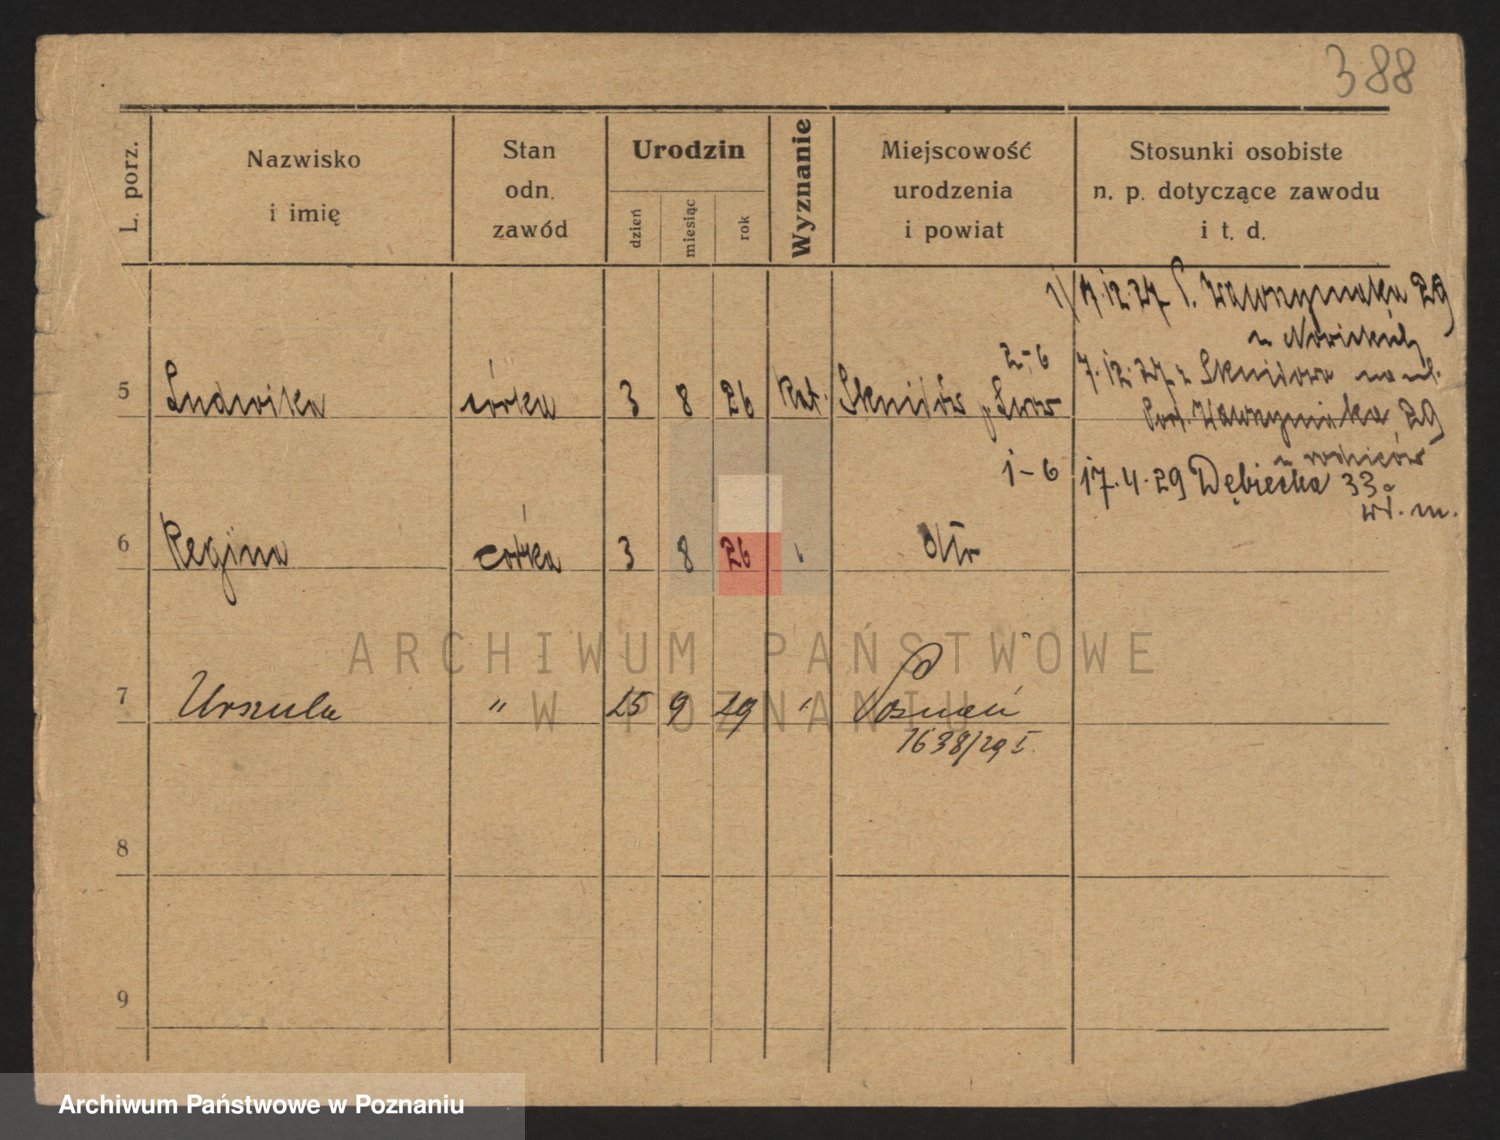 388
L. porz.
Nazwisko
i imię
Stan
odn.
zawód
Urodzin
dzień
miesiąc
rok
Wyznanie
Miejscowość
urodzenia
i powiat
Stosunki osobiste
n. p. dotyczące zawodu
i t. d.
1/ 7.12.27 P. Wawrzyniaka 29
u
2-6
7.12.27 z Skniłowa na ul.
5 Ludwika córka 3 8 26 Kat. Skniłów p Lwów
Wawrzyniaka 29
u rodziców
1-6 17.4.29 Dębiecka 33a
wł. m.
6 Regina córka 3 8 26 " dtto
ARCHIWUM PAŃSTWOWE
W POZNANIU
7 Urszula " 25 9 29 " Poznań
1638/29 I.
8
9
Archiwum Państwowe w Poznaniu